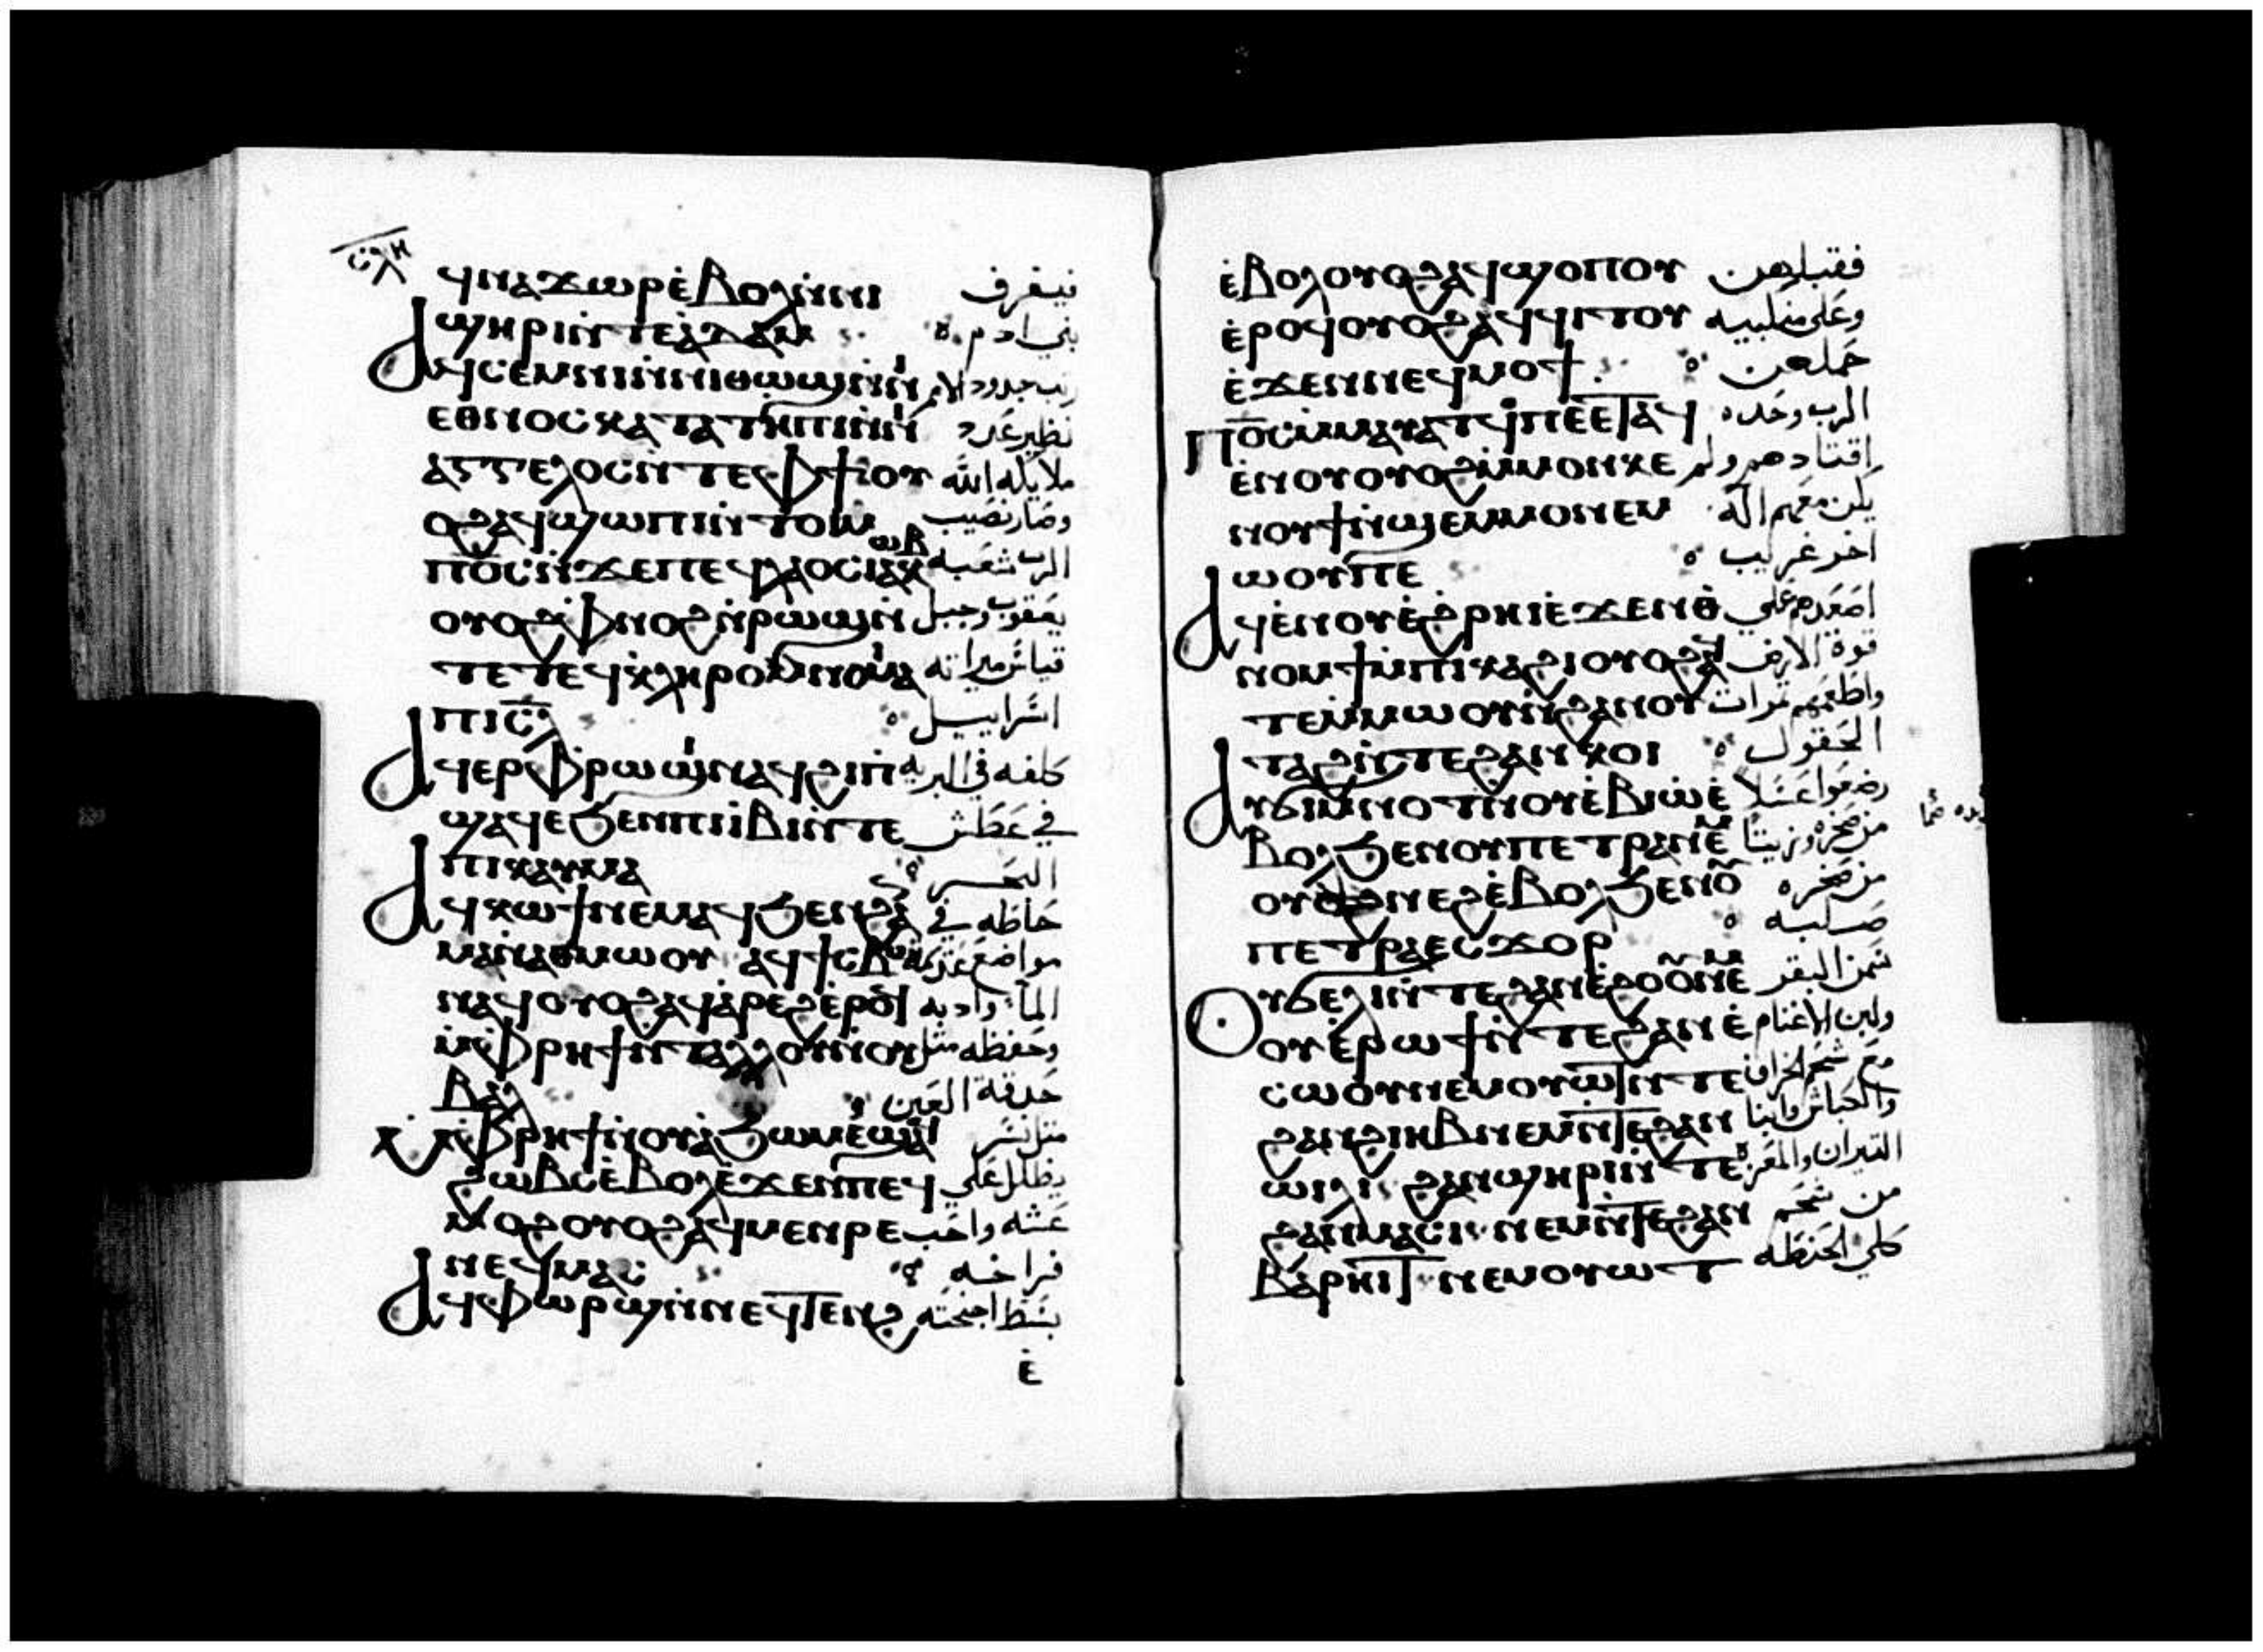 ⲥⲗⲏ
ϥⲛⲁϫⲱⲣ ⲉ̀ⲃⲟⲗ ⲛ̀ⲛⲓ
ϣⲏⲣⲓ ⲛ̀ⲧⲉ ⲁ̀ⲇⲁⲙ بني ادم
ⲁϥⲥⲉⲙⲛⲓ ⲛ̀ⲛⲓⲑⲱϣ ⲛ̀ⲛⲓ
ⲉⲑⲛⲟⲥ ⲕⲁⲧⲁ ⲧⲏⲡⲓ ⲛ̀ⲛⲓ نظير عدد
ⲁⲅⲅⲉⲗⲟⲥ ⲛ̀ⲧⲉ ⲫϯ ⲟⲩ ملايكه الله
ⲟϩ ⲁϥϣⲱⲡⲓ ⲛ̀ⲧⲟⲓ ⲙ̀ وصار نصيب
ⲡⲟ̅ⲥ̅ ⲛ̀ϫⲉ ⲡⲉϥⲗⲁⲟⲥ ⲓⲁⲕⲱⲃ الرب شعبه
ⲟⲩⲟϩ ⲫⲛⲟϩ ⲛ̀ⲣⲱϣ ⲛ̀ يعقوب وحبل
ⲧⲉ ⲧⲉϥⲕⲗⲏⲣⲟⲛⲟⲙⲓⲁ قياس ميراثه
ⲡⲓⲥ̅ⲗ̅ اسراييل
ⲁϥⲉⲣⲫⲣⲱϣ ⲛⲁϥ ϩⲓ ⲡ كلفه في البريه
ϣⲁϥⲉ ϧⲉⲛ ⲡⲓⲓ̀ⲃⲓ ⲛ̀ⲧⲉ في عطش
ⲡⲓⲕⲁⲩⲙⲁ الحر
ⲁϥⲕⲱϯ ⲛⲉⲙⲁϥ ϧⲉⲛ ϩⲁ حاطه في
ⲙⲁ ⲛ̀ⲁⲑⲙⲱⲟⲩ ⲁϥϯⲥⲃⲱ مواضع
ⲛⲁϥ ⲟⲩⲟϩ ⲁϥⲁ̀ⲣⲉϩ ⲉ̀ⲣⲟϥ الماء وادبه
ⲙ̀ⲫⲣⲏϯ ⲛ̀ⲧⲁⲗⲗⲟⲩ ⲛ̀ⲟⲩ وحفظه مثل
ⲃⲁⲗ حدقة العين
ⲙ̀ⲫⲣⲏϯ ⲛ̀ⲟⲩⲁ̀ϧⲱⲙ ⲉ̀ϣⲁϥ مثل نسر
ϩⲱⲃⲥ ⲉ̀ⲃⲟⲗ ⲉ̀ϫⲉⲛ ⲡⲉϥ يظلل على
ⲙⲟϩ ⲟⲩⲟϩ ⲁϥⲙⲉⲛⲣⲉ عشه واحب
ⲛⲉϥⲙⲁⲥ فراخه
ⲁϥⲫⲱⲣϣ ⲛ̀ⲛⲉϥⲧⲉⲛϩ بسط اجنحته
ⲉ̀
ⲉ̀ⲃⲟⲗ ⲟⲩⲟϩ ⲁϥϣⲟⲡⲟⲩ فقبلهن
ⲉ̀ⲣⲟϥ ⲟⲩⲟϩ ⲁϥϥⲓⲧⲟⲩ وعلى منكبيه
ⲉ̀ϫⲉⲛ ⲛⲉϥⲙⲟϯ حملهن
ⲡⲟ̅ⲥ̅ ⲙ̀ⲙⲁⲩⲁⲧϥ ⲡⲉ ⲉⲧⲁϥ الرب وحده
ⲉ̀ⲛⲟⲩ ⲟⲩⲟϩ ⲙ̀ⲙⲟⲛ ⲕⲉ اقتادهم ولم
ⲛⲟⲩϯ ⲛ̀ϣⲉⲙⲙⲟ ⲛⲉⲙ يكن معهم اله
ⲱⲟⲩ ⲡⲉ اخر غريب
ⲁϥⲉ̀ⲛⲟⲩ ⲉ̀ϩⲣⲏⲓ ⲉ̀ϫⲉⲛ ⲑ اصعدهم على
ⲛⲟⲙϯ ⲙ̀ⲡⲓⲕⲁϩⲓ ⲟⲩⲟϩ ⲁϥ قوة الارض
ⲧⲉⲙⲙⲱⲟⲩ ⲛ̀ϩⲁⲛⲟⲩ واطعمهم ثمرات
ⲧⲁϩ ⲛ̀ⲧⲉ ϩⲁⲛⲕⲟⲓ الحقول
ⲁⲩϭⲓ ⲙ̀ⲛⲟϯ ⲛ̀ⲟⲩⲉ̀ⲃⲓⲱ ⲉ̀ رضعوا عسلا
ⲃⲟⲗ ϧⲉⲛ ⲟⲩⲡⲉⲧⲣⲁ ⲛⲉⲙ من صخره وزيتا
ⲟⲩⲛⲉϩ ⲉ̀ⲃⲟⲗ ϧⲉⲛ ⲟⲩ من صخره
ⲡⲉⲧⲣⲁ ⲉⲥϫⲟⲣ صلبه
ⲟⲩϭⲉⲗⲓ ⲛ̀ⲧⲉ ϩⲁⲛⲉ̀ϩⲱⲟⲩ ⲛⲉⲙ سمن البقر
ⲟⲩⲉ̀ⲣⲱϯ ⲛ̀ⲧⲉ ϩⲁⲛⲉ̀ ولبن الاغنام
ⲥⲱⲟⲩ ⲛⲉⲙ ⲟⲩⲱⲧ ⲛ̀ⲧⲉ مع شحم الخراف
ϩⲁⲛϩⲓⲏⲃ ⲛⲉⲙ ⲛ̀ⲧⲉ ϩⲁⲛ والكباش وابنا
ⲱⲓⲗⲓ ϩⲁⲛϣⲏⲣⲓ ⲛ̀ⲧⲉ الثيران والمعز
ϩⲁⲛⲙⲁⲥⲓ ⲛⲉⲙ ⲛ̀ⲧⲉ ϩⲁⲛ من شحم
ⲃⲁⲣⲏⲓⲧ ⲛⲉⲙ ⲟⲩⲱⲧ كلى الحنطه